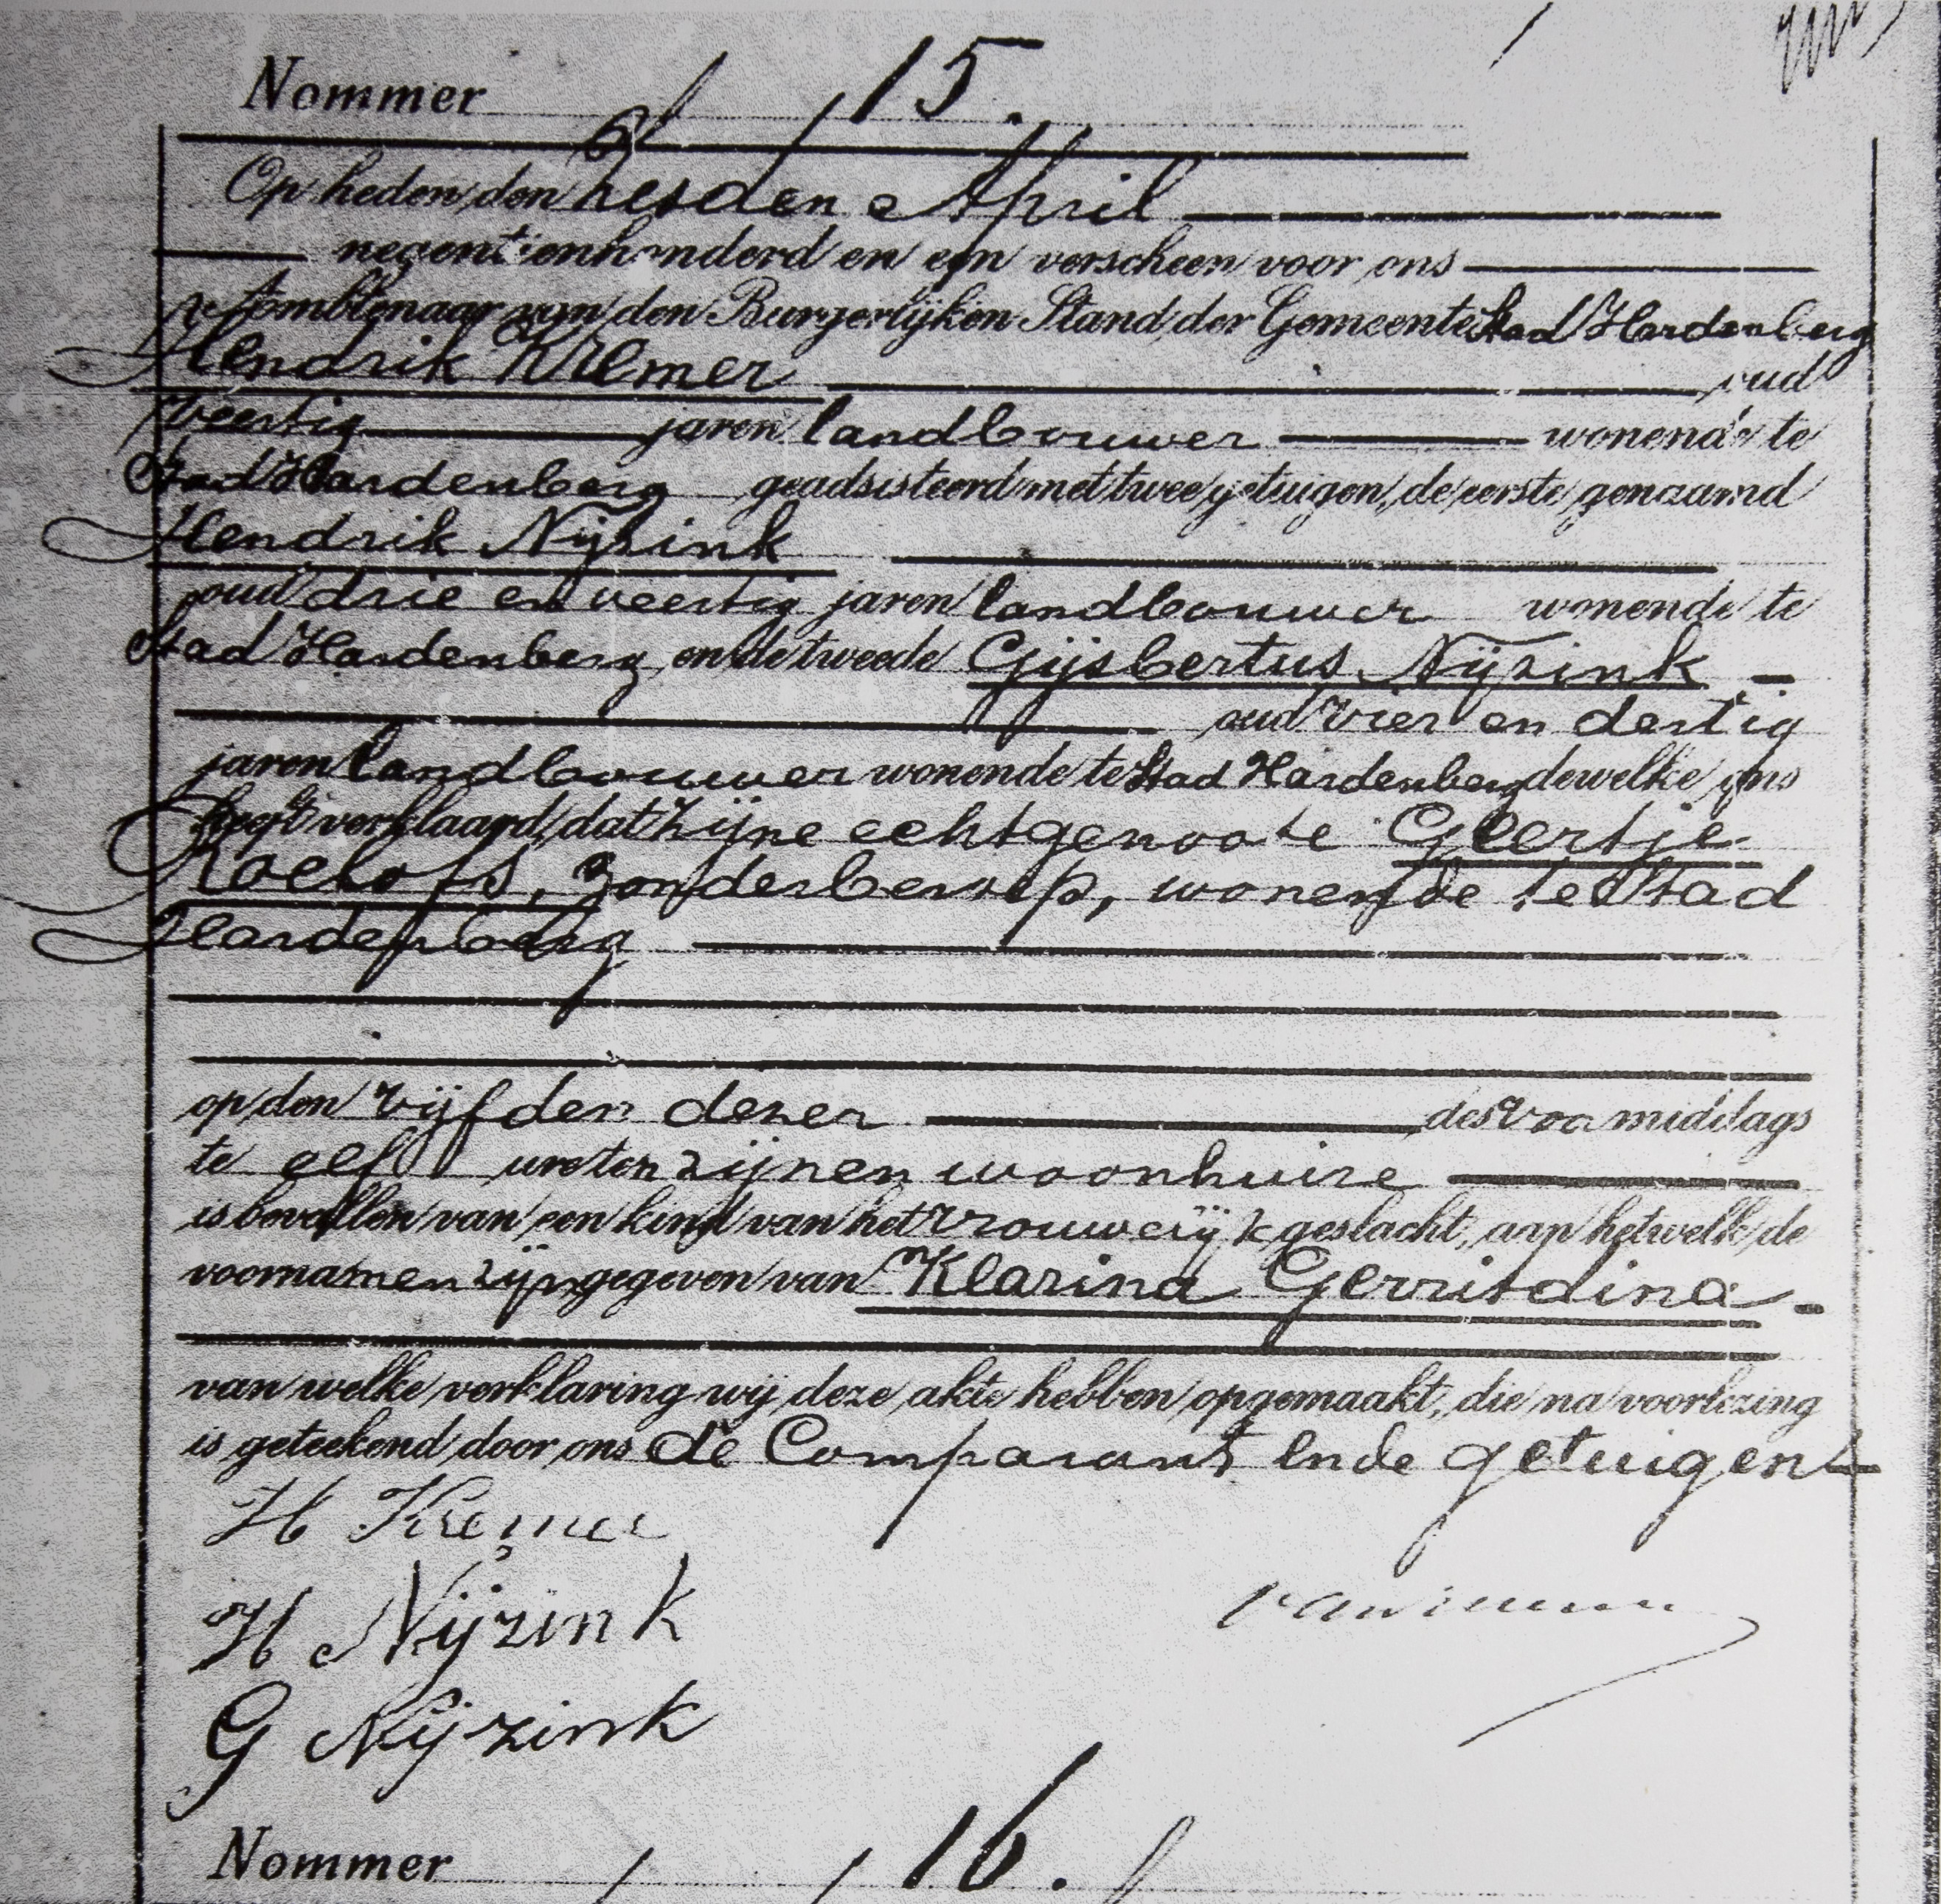 Nommer 15.
Op heden den zesden April
negentienhonderd en een verscheen voor ons
Ambtenaar van den Burgerlijken Stand der Gemeente Stad Hardenberg
Hendrik Kremer oud
veertig jaren landbouwer wonende te
Stad Hardenberg geadsisteerd met twee getuigen, de eerste genaamd
Hendrik Nijzink
oud drie en veertig jaren landbouwer wonende te
Stad Hardenberg en de tweede Gijsbertus Nijzink
oud vier en dertig
jaren landbouwer wonende te Stad Hardenberg dewelke ons
heeft verklaard, dat zijne echtgenoote Geertje
Roelofs, zonder beroep, wonende te Stad
Hardenberg
op den vijfden dezer des voormiddags
te elf ure ten zijnen woonhuize
is bevallen van een kind van het vrouwelijk geslacht, aan hetwelk de
voornamen zijn gegeven van Klarina Gerritdina
van welke verklaring wij deze akte hebben opgemaakt, die na voorlezing
is geteekend door ons de Comparant en de getuigen
H Kremer
H Nijzink
G Nijzink
Nommer 16.